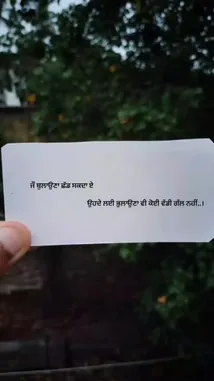 ਜੋ ਬੁਲਾਉਣਾ ਛੱਡ ਸਕਦਾ ਏ
ਉਹਦੇ ਲਈ ਭੁਲਾਉਣਾ ਵੀ ਕੋਈ ਵੱਡੀ ਗੱਲ ਨਹੀਂ..।